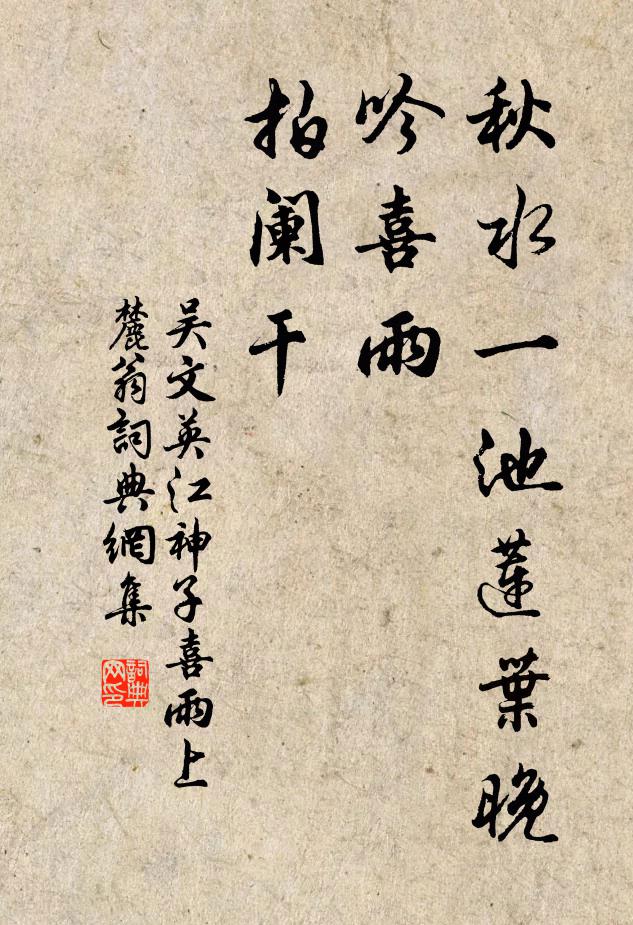 秋水一池蓮葉晚
吟喜雨
拍阑干
吴文英江神子喜雨上
麓翁詞典網集
詞典
网印